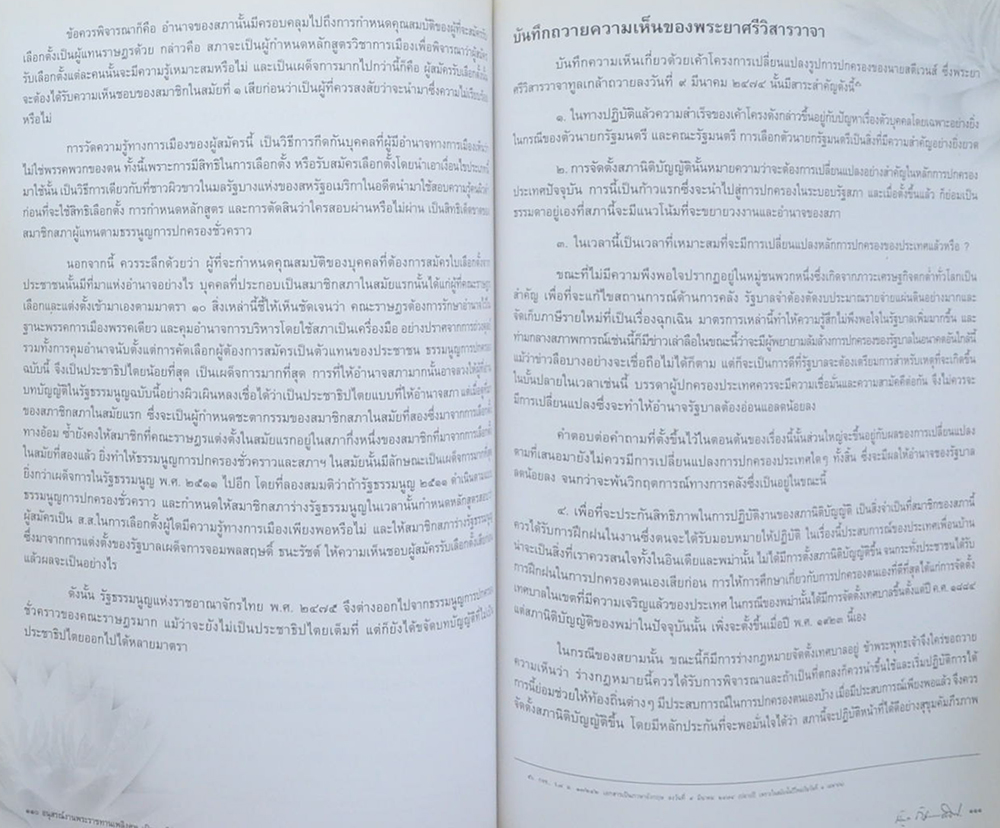 ข้อควรพิจารณาก็คือ อำนาจของสภานั้นมีครอบคลุมไปถึงการกำหนดคุณสมบัติของผู้ที่จะสมัครรับ
เลือกตั้งเป็นผู้แทนราษฎรด้วย กล่าวคือ สภาจะเป็นผู้กำหนดหลักสูตรวิชาการเมืองเพื่อพิจารณาว่าผู้สมัคร
รับเลือกตั้งแต่ละคนนั้นจะมีความรู้เหมาะสมหรือไม่ และเป็นเผด็จการมากไปกว่านี้ก็คือ ผู้สมัครรับเลือกตั้งนั้น
จะต้องได้รับความเห็นชอบของสมาชิกในสมัยที่ ๑ เสียก่อนว่าเป็นผู้ที่ควรสงสัยว่าจะนำมาซึ่งความไม่เรียบร้อย
หรือไม่
การวัดความรู้ทางการเมืองของผู้สมัครนี้ เป็นวิธีการกีดกันบุคคลที่ผู้มีอำนาจทางการเมืองเห็นว่า
ไม่ใช่พรรคพวกของตน ทั้งนี้เพราะการมีสิทธิในการเลือกตั้ง หรือรับสมัครเลือกตั้งโดยนำเอาเงื่อนไขประเภทนี้
มาใช้นั้น เป็นวิธีการเดียวกับที่ชาวผิวขาวในมลรัฐบางแห่งของสหรัฐอเมริกาในอดีตนำมาใช้สอบความรู้คนผิวดำ
ก่อนที่จะใช้สิทธิเลือกตั้ง การกำหนดหลักสูตร และการตัดสินว่าใครสอบผ่านหรือไม่ผ่าน เป็นสิทธิเด็ดขาดของ
สมาชิกสภาผู้แทนตามธรรมนูญการปกครองชั่วคราว
นอกจากนี้ ควรระลึกด้วยว่า ผู้ที่จะกำหนดคุณสมบัติของบุคคลที่ต้องการสมัครใบเลือกตั้งจาก
ประชาชนนั้นมีที่มาแห่งอำนาจอย่างไร บุคคลที่ประกอบเป็นสมาชิกสภาในสมัยแรกนั้นได้แก่ผู้ที่คณะราษฎร
เลือกและแต่งตั้งเข้ามาเองตามมาตรา ๑๐ สิ่งเหล่านี้ชี้ให้เห็นชัดเจนว่า คณะราษฎรต้องการรักษาอำนาจไว้ใน
ฐานะพรรคการเมืองพรรคเดียว และคุมอำนาจการบริหารโดยใช้สภาเป็นเครื่องมือ อย่างปราศจากการถ่วงดุล
รวมทั้งการคุมอำนาจนับตั้งแต่การคัดเลือกผู้ต้องการสมัครเป็นตัวแทนของประชาชน ธรรมนูญการปกครอง
ฉบับนี้ จึงเป็นประชาธิปไตยน้อยที่สุด เป็นเผด็จการมากที่สุด การที่ให้อำนาจสภามากนั้นอาจลวงให้ผู้ที่อ่าน
บทบัญญัติในรัฐธรรมนูญฉบับนี้อย่างผิวเผินหลงเชื่อได้ว่าเป็นประชาธิปไตยแบบที่ให้อำนาจสภา แต่เมื่อดูที่มา
ของสภาชิกสภาในสมัยแรก ซึ่งจะเป็นผู้กำหนดชะตากรรมของสมาชิกสภาในสมัยที่สองซึ่งมาจากการเลือกตั้ง
ทางอ้อม ซ้ำยังคงให้สมาชิกที่คณะราษฎรแต่งตั้งในสมัยแรกอยู่ในสภากึ่งหนึ่งของสมาชิกที่มาจากการเลือกตั้ง
ในสมัยที่สองแล้ว ยิ่งทำให้ธรรมนูญการปกครองชั่วคราวและสภาฯ ในสมัยนั้นมีลักษณะเป็นเผด็จการมากที่สุด
ยิ่งกว่าเผด็จการในรัฐธรรมนูญ พ.ศ. ๒๕๑๑ ไปอีก โดยที่ลองสมมติว่าถ้ารัฐธรรมนูญ ๒๕๑๑ ดำเนินตามแบบ
ธรรมนูญการปกครองชั่วคราว และกำหนดให้สมาชิกสภาร่างรัฐธรรมนูญในเวลานั้นกำหนดหลักสูตรสอบว่า
ผู้สมัครเป็น ส.ส.ในการเลือกตั้งผู้ใดมีความรู้ทางการเมืองเพียงพอหรือไม่ และให้สมาชิกสภาร่างรัฐธรรมนูญ
ซึ่งมาจากการแต่งตั้งของรัฐบาลเผด็จการจอมพลสฤษดิ์ ธนะรัชต์ ให้ความเห็นชอบผู้สมัครรับเลือกตั้งเสียก่อน
แล้วผลจะเป็นอย่างไร
ดังนั้น รัฐธรรมนูญแห่งราชอาณาจักรไทย พ.ศ. ๒๔๗๕ จึงต่างออกไปจากธรรมนูญการปกครอง
ชั่วคราวของคณะราษฎรมาก แม้ว่าจะยังไม่เป็นประชาธิปไตยเต็มที่ แต่ก็ยังได้ขจัดบทบัญญัติที่ไม่เป็น
ประชาธิปไตยออกไปได้หลายมาตรา
๑๑๐ อนุสรณ์งานพระราชทานเพลิงศพ
บันทึกถวายความเห็นของพระยาศรีวิสารวาจา
บันทึกความเห็นเกี่ยวด้วยเค้าโครงการเปลี่ยนแปลงรูปการปกครองของนายสตีเวนส์ ซึ่งพระยา
ศรีวิสารวาจาทูลเกล้าถวายลงวันที่ ๙ มีนาคม ๒๔๗๔ นั้นมีสาระสำคัญดังนี้
๑. ในทางปฏิบัติแล้วความสำเร็จของเค้าโครงดังกล่าวขึ้นอยู่กับปัญหาเรื่องตัวบุคคลโดยเฉพาะอย่างยิ่ง
ในกรณีของตัวนายกรัฐมนตรี และคณะรัฐมนตรี การเลือกตัวนายกรัฐมนตรีเป็นสิ่งที่มีความสำคัญอย่างยิ่งยวด
๒. การจัดตั้งสภานิติบัญญัตินั้นหมายความว่าจะต้องการเปลี่ยนแปลงอย่างสำคัญในหลักการปกครอง
ประเทศปัจจุบัน การนี้เป็นก้าวแรกซึ่งจะนำไปสู่การปกครองในระบอบรัฐสภา และเมื่อตั้งขึ้นแล้ว ก็ย่อมเป็น
ธรรมดาอยู่เองที่สภานี้จะมีแนวโน้มที่จะขยายวงงานและอำนาจของสภา
๓. ในเวลานี้เป็นเวลาที่เหมาะสมที่จะมีการเปลี่ยนแปลงหลักการปกครองของประเทศแล้วหรือ ?
ขณะที่ไม่มีความพึงพอใจปรากฏอยู่ในหมู่ชนพวกหนึ่งซึ่งเกิดจากภาวะเศรษฐกิจตกต่ำทั่วโลกเป็น
สำคัญ เพื่อที่จะแก้ไขสถานการณ์ด้านการคลัง รัฐบาลจำต้องตัดงบประมาณรายจ่ายแผ่นดินอย่างมากและ
จัดเก็บภาษีรายใหม่ที่เป็นเรื่องฉุกเฉิน มาตรการเหล่านี้ทำให้ความรู้สึกไม่พึงพอใจในรัฐบาลเพิ่มมากขึ้น และ
ท่ามกลางสภาพการณ์เช่นนี้ก็มีข่าวเล่าลือในขณะนี้ว่าจะมีผู้พยายามล้มล้างการปกครองของรัฐบาลในอนาคตอันใกล้นี้
แม้ว่าข่าวลือบางอย่างจะเชื่อถือไม่ได้ก็ตาม แต่ก็จะเป็นการดีที่รัฐบาลจะต้องเตรียมการสำหรับเหตุที่จะเกิดขึ้น
ในบั้นปลายในเวลาเช่นนี้ บรรดาผู้ปกครองประเทศควรจะมีความเชื่อมั่นและความสามัคคีต่อกัน จึงไม่ควรจะ
มีการเปลี่ยนแปลงซึ่งจะทำให้อำนาจรัฐบาลต้องอ่อนแอลดน้อยลง
คำตอบต่อคำถามที่ตั้งขึ้นไว้ในตอนต้นของเรื่องนี้นั้นส่วนใหญ่จะขึ้นอยู่กับผลของการเปลี่ยนแปลง
ตามที่เสนอมายังไม่ควรมีการเปลี่ยนแปลงการปกครองประเทศใดๆ ทั้งสิ้น ซึ่งจะมีผลให้อำนาจของรัฐบาล
ลดน้อยลง จนกว่าจะพ้นวิกฤตการณ์ทางการคลังซึ่งเป็นอยู่ในขณะนี้
๔. เพื่อที่จะประกันสิทธิภาพในการปฏิบัติงานของสภานิติบัญญัติ เป็นสิ่งจำเป็นที่สมาชิกของสภานี้
ควรได้รับการฝึกฝนในงานซึ่งตนจะได้รับมอบหมายให้ปฏิบัติ ในเรื่องนี้ประสบการณ์ของประเทศเพื่อนบ้าน
น่าจะเป็นสิ่งที่เราควรสนใจทั้งในอินเดียและพม่านั้น ไม่ได้มีการตั้งสภานิติบัญญัติขึ้น จนกระทั่งประชาชนได้รับ
การฝึกฝนในการปกครองตนเองเสียก่อน การให้การศึกษาเกี่ยวกับการปกครองตนเองที่ดีที่สุดได้แก่การจัดตั้ง
เทศบาลในเขตที่มีความเจริญแล้วของประเทศ ในกรณีของพม่านั้นได้มีการจัดตั้งเทศบาลขึ้นตั้งแต่ปี ค.ศ. ๑๘๘๔
แต่สภานิติบัญญัติของพม่าในปัจจุบันนั้น เพิ่งจะตั้งขึ้นเมื่อปี พ.ศ. ๑๙๒๓ นี้เอง
ในกรณีของสยามนั้น ขณะนี้ก็มีการร่างกฎหมายจัดตั้งเทศบาลอยู่ ข้าพระพุทธเจ้าจึงใคร่ขอถวาย
ความเห็นว่า ร่างกฎหมายนี้ควรได้รับการพิจารณาและถ้าเป็นที่ตกลงก็ควรนำขึ้นใช้และเริ่มปฏิบัติการได้
การนี้ย่อมช่วยให้ท้องถิ่นต่างๆ มีประสบการณ์ในการปกครองตนเองบ้าง เมื่อมีประสบการณ์เพียงพอแล้ว จึงควร
จัดตั้งสภานิติบัญญัติขึ้น โดยมีหลักประกันที่จะพอมั่นใจได้ว่า สภานี้จะปฏิบัติหน้าที่ได้ดีอย่างสุขุมคัมภีรภาพ
๑๑๑